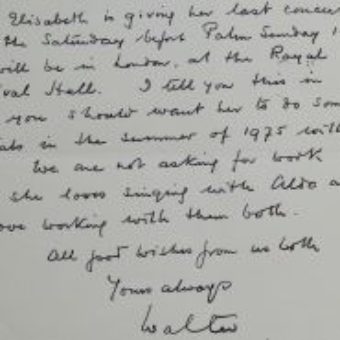 Elisabeth is giving her last concert
the Saturday before Palm Sunday
will be in London, at the Royal
val Hall. I tell you this in
you should want her to do som
in the summer of 1975 with
We are not asking for work
she loves singing with Aldo a
ove working with them both.
All good wishes from us both
Yours always
Walter